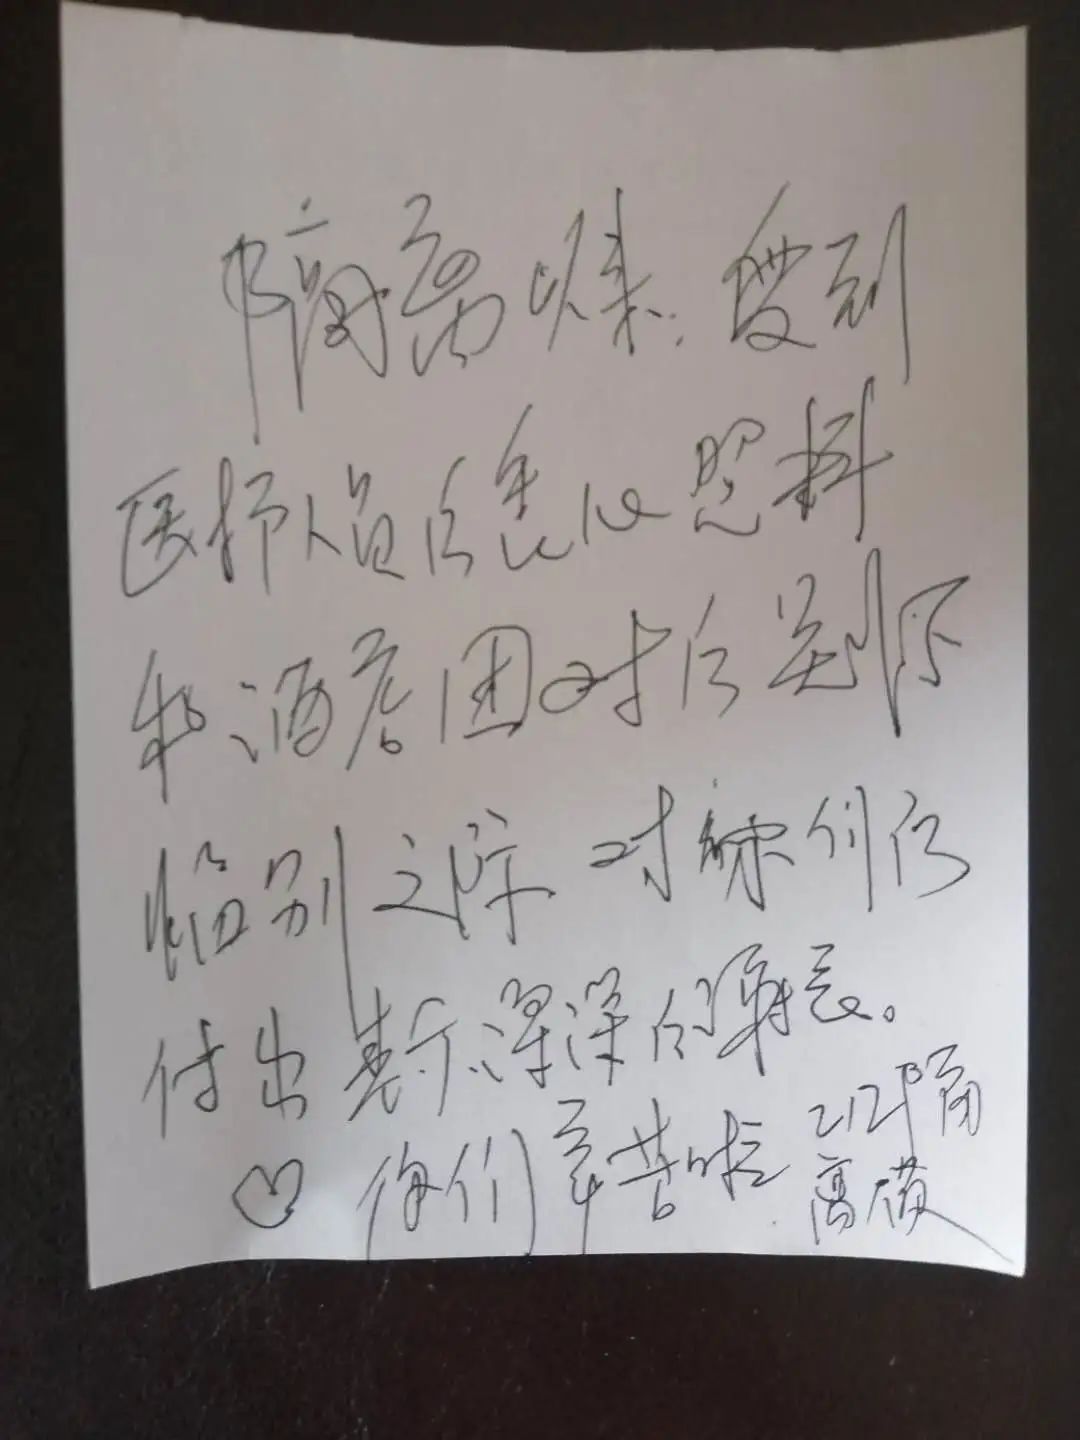 隔离以来,受到
医护人员的悉心照料
和酒店团对的关怀
临别之际 对你们的
付出表示深深的谢意。
你们辛苦啦 212隔
离